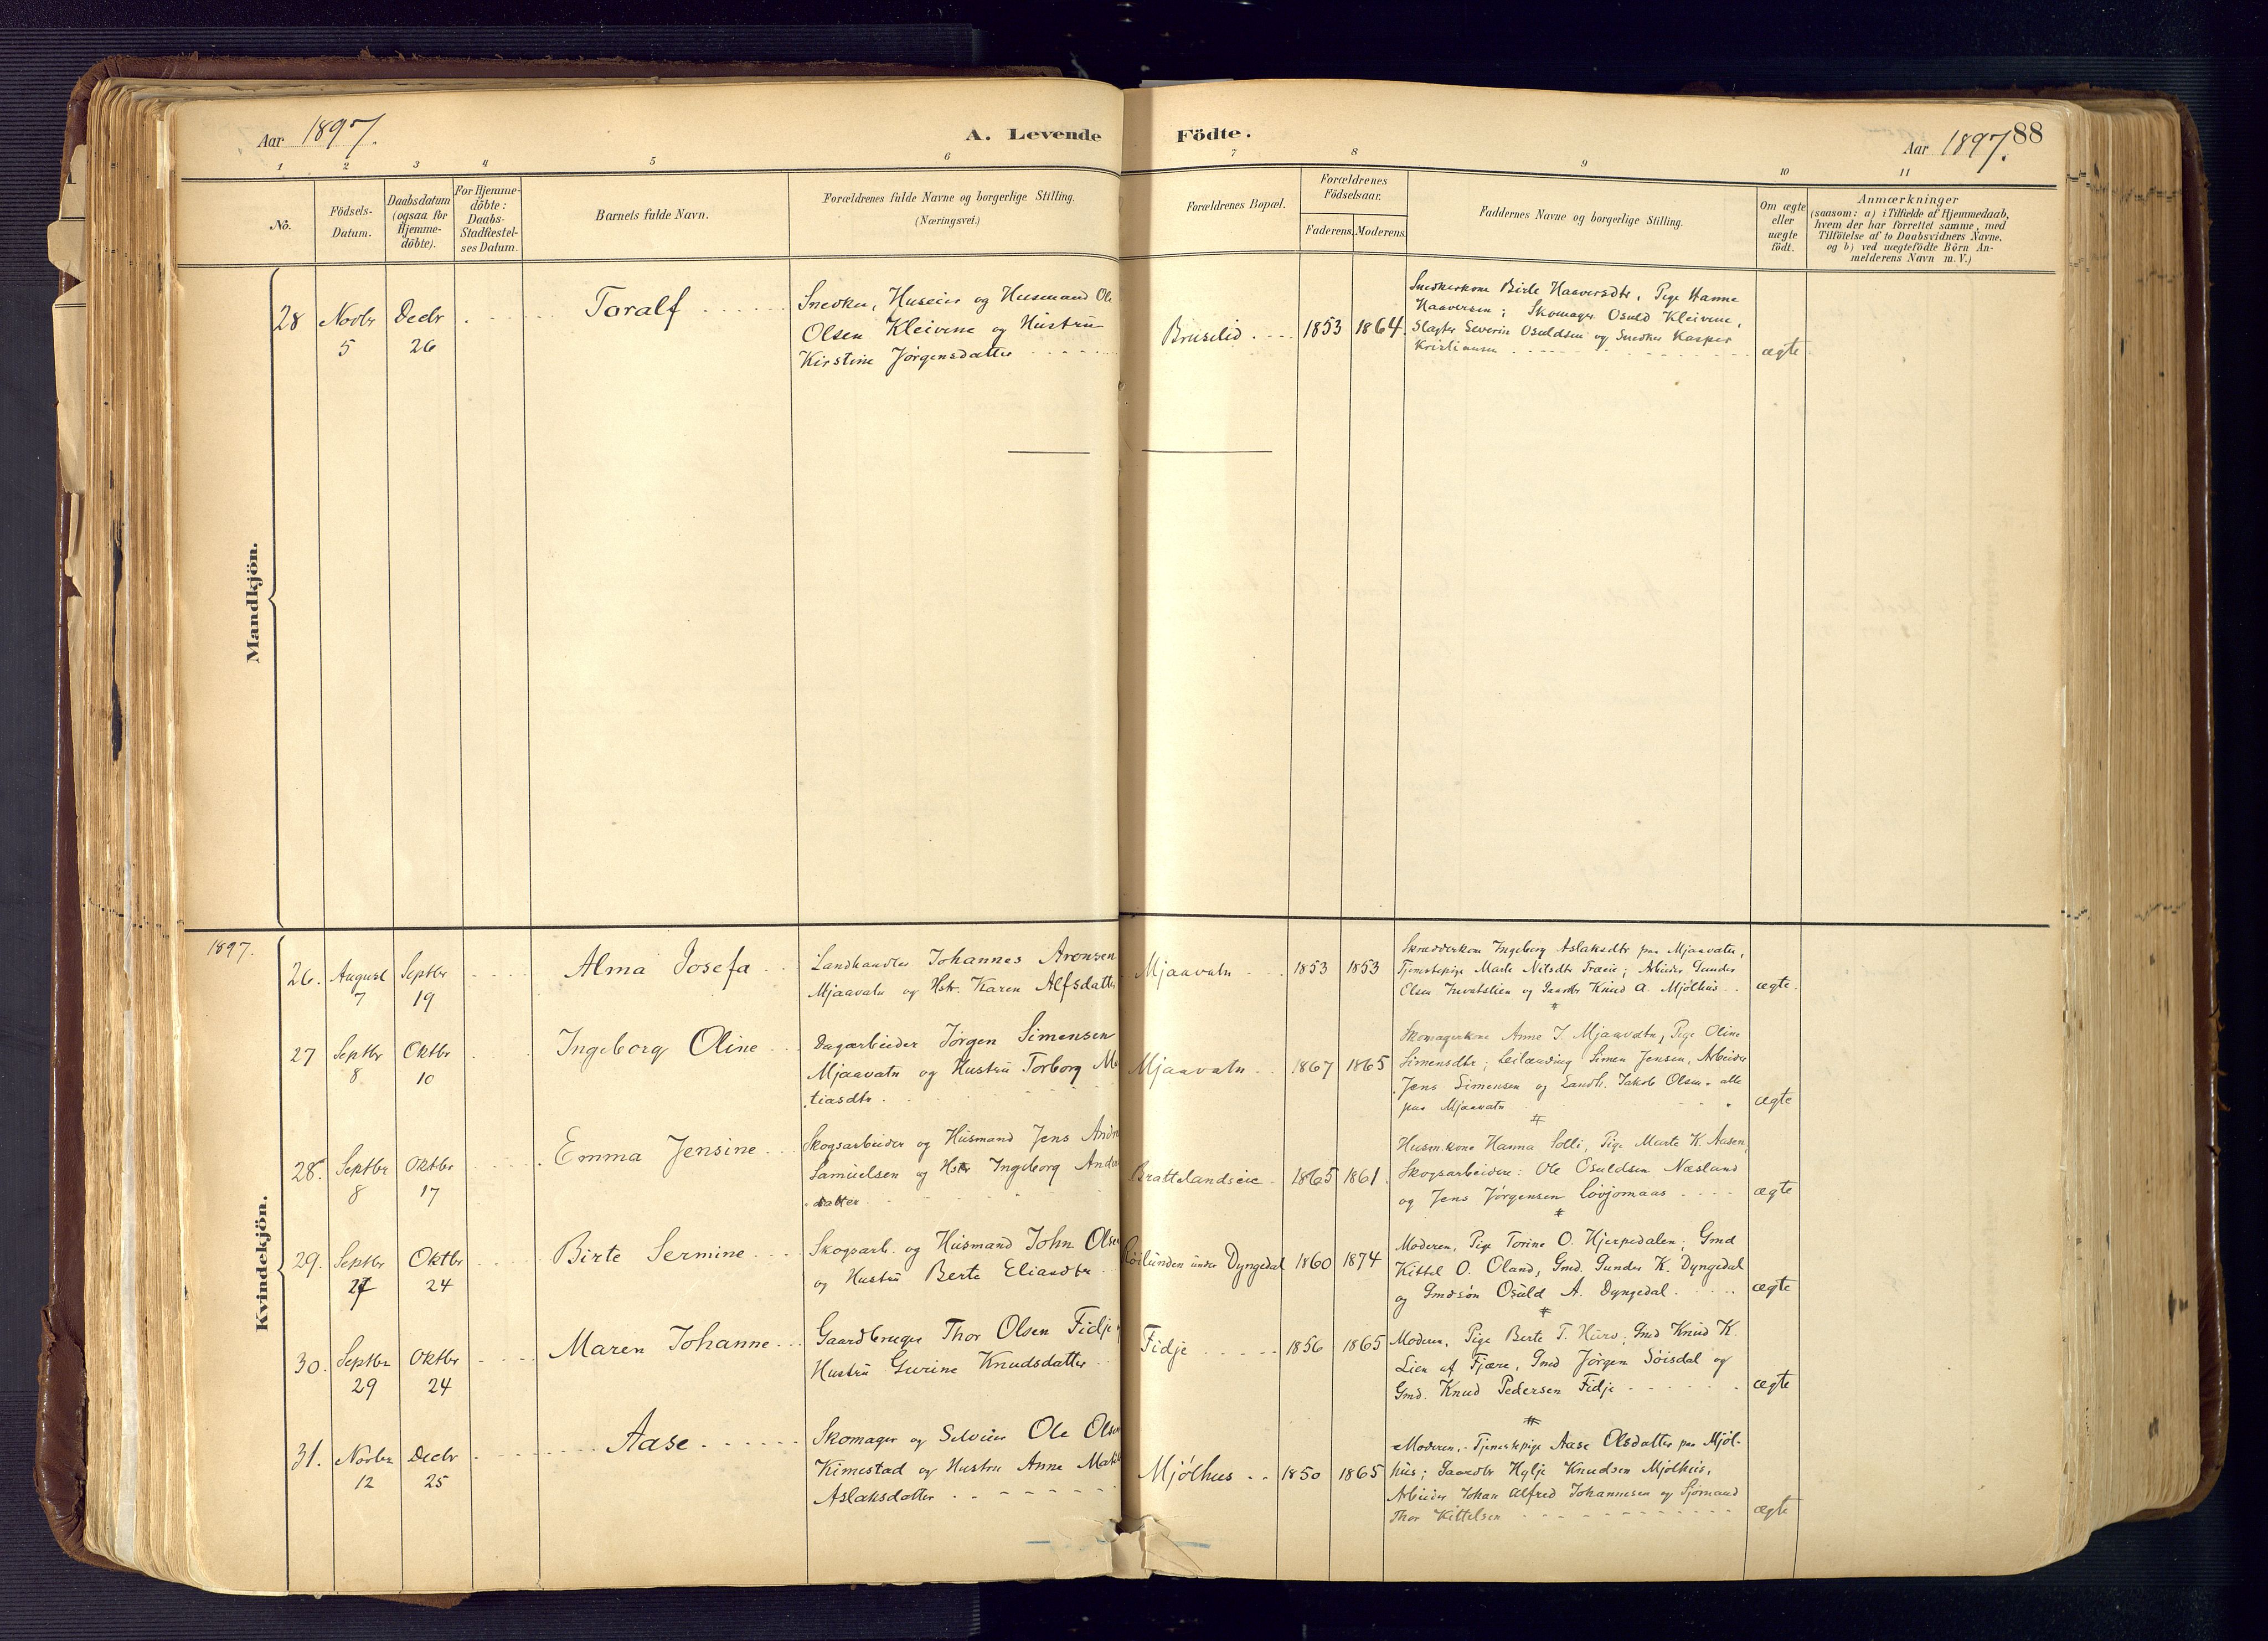 Aar 1897.
A. Levende Födte.
Aar 1897. 88
1 2 3 4 5 6 7 8 9 10 11
No.
Födsels-
Datum.
Daabsdatum
(ogsaa for
Hjemme-
döbte).
For Hjemme-
döbte:
Daabs-
Stadfæstel-
ses Datum.
Barnets fulde Navn.
Forældrenes fulde Navne og borgerlige Stilling.
(Næringsvei.)
Forældrenes Bopæl.
Forældrenes
Födselsaar.
Faderens. Moderens.
Faddernes Navne og borgerlige Stilling.
Om ægte
eller
uægte
födt.
Anmærkninger
(saasom: a) i Tilfælde af Hjemmedaab,
hvem der har forrettet samme, med
Tilföielse af to Daabsvidners Navne,
og b) ved uægtefödte Börn An-
melderens Navn m. V.)
Mandkjön.
28 Novbr
5
Decbr
26
Taralf
Snedker, Huseier og Husmand Ole
Olsen Kleivene og Hustru
Kirstine Jørgensdatter
Bruselid
1853 1864.
Snedkerkone Birte Haaversdtr, Pige Hanna
Haaversen; Skomager Osuld Kleivene,
Slagter Severin Osuldsen og Snedker Kasper
Kristiansen
ægte
Kvindekjön.
1897.
26. August
7
Septbr
19
Alma Josefa
Landhandler Johannes Aronsen
Mjaavatn og Hstr. Karen Alfsdatter
Mjaavatn
1853 1853
Skrædderkone Ingeborg Aslaksdtr paa Mjaavatn,
Tjenestepige Marte Nilsdtr Træeie; Arbeider Gunder
Olsen og Gaardbr Knud A. Mjölhus
ægte.
27 Septbr
8
Oktbr
10
Ingeborg Oline
Dagarbeider Jörgen Simensen
Mjaavatn og Hustru Torborg Ma
tiasdtr.
Mjaavatn
1867 1865
Skomagerkone Anne J. Mjaavatn, Pige Oline
Simensdtr; Leilænding Simen Jensen, Arbeider
Jens Simensen og Landh. Jakob Olsen - alle
paa Mjaavatn
ægte
28. Septbr
8
Oktbr
17
Emma Jensine
Skogsarbeider og Husmand Jens Andr
Samuelsen og Hstr Ingeborg Anders
datter
Brattelandseie
1865 1861.
Husm.kone Hanna Solli, Pige Marte K. Aasen,
Skogsarbeidere: Ole Osuldsen Næsland
og Jens Jörgensen Lövjomaas
ægte
29. Septbr
27
Oktbr
24
Birte Sermine
Skogsarb. og Husmand John Olsen
og Hustru Berte Eliasdtr
under Dyngedal
1860 1874
Moderen, Pige Torine O. Hjerpedalen; Gmd
Kittel O. Oland, Gmd. Gunder K. Dyngedal
og Gmdsön Osuld A. Dyngedal.
ægte
30. Septbr
29
Oktbr
24
Maren Johanne
Gaardbruger Thor Olsen Fidje
Hustru Gurine Knudsdatter
Fidje
1856 1865
Moderen, Pige Berte T. Hurv; Gmd Knud K.
Lien af Fjære, Gmd Jörgen Söisdal og
Gmd. Knud Pedersen Fidje
ægte
31. Novbr
12
Decbr
25
Aase
Skomager og Selveier Ole Olsen
Kimestad og Hustru Anne
Aslaksdatter
Mjölhus
1850 1865
Moderen, Tjenestepige Aase Olsdatter paa Mjöl-
hus; Gaardbr Hylje Knudsen Mjölhus,
Arbeider Johan Alfred Johannesen og Sjömand
Thor Kittelsen
ægte